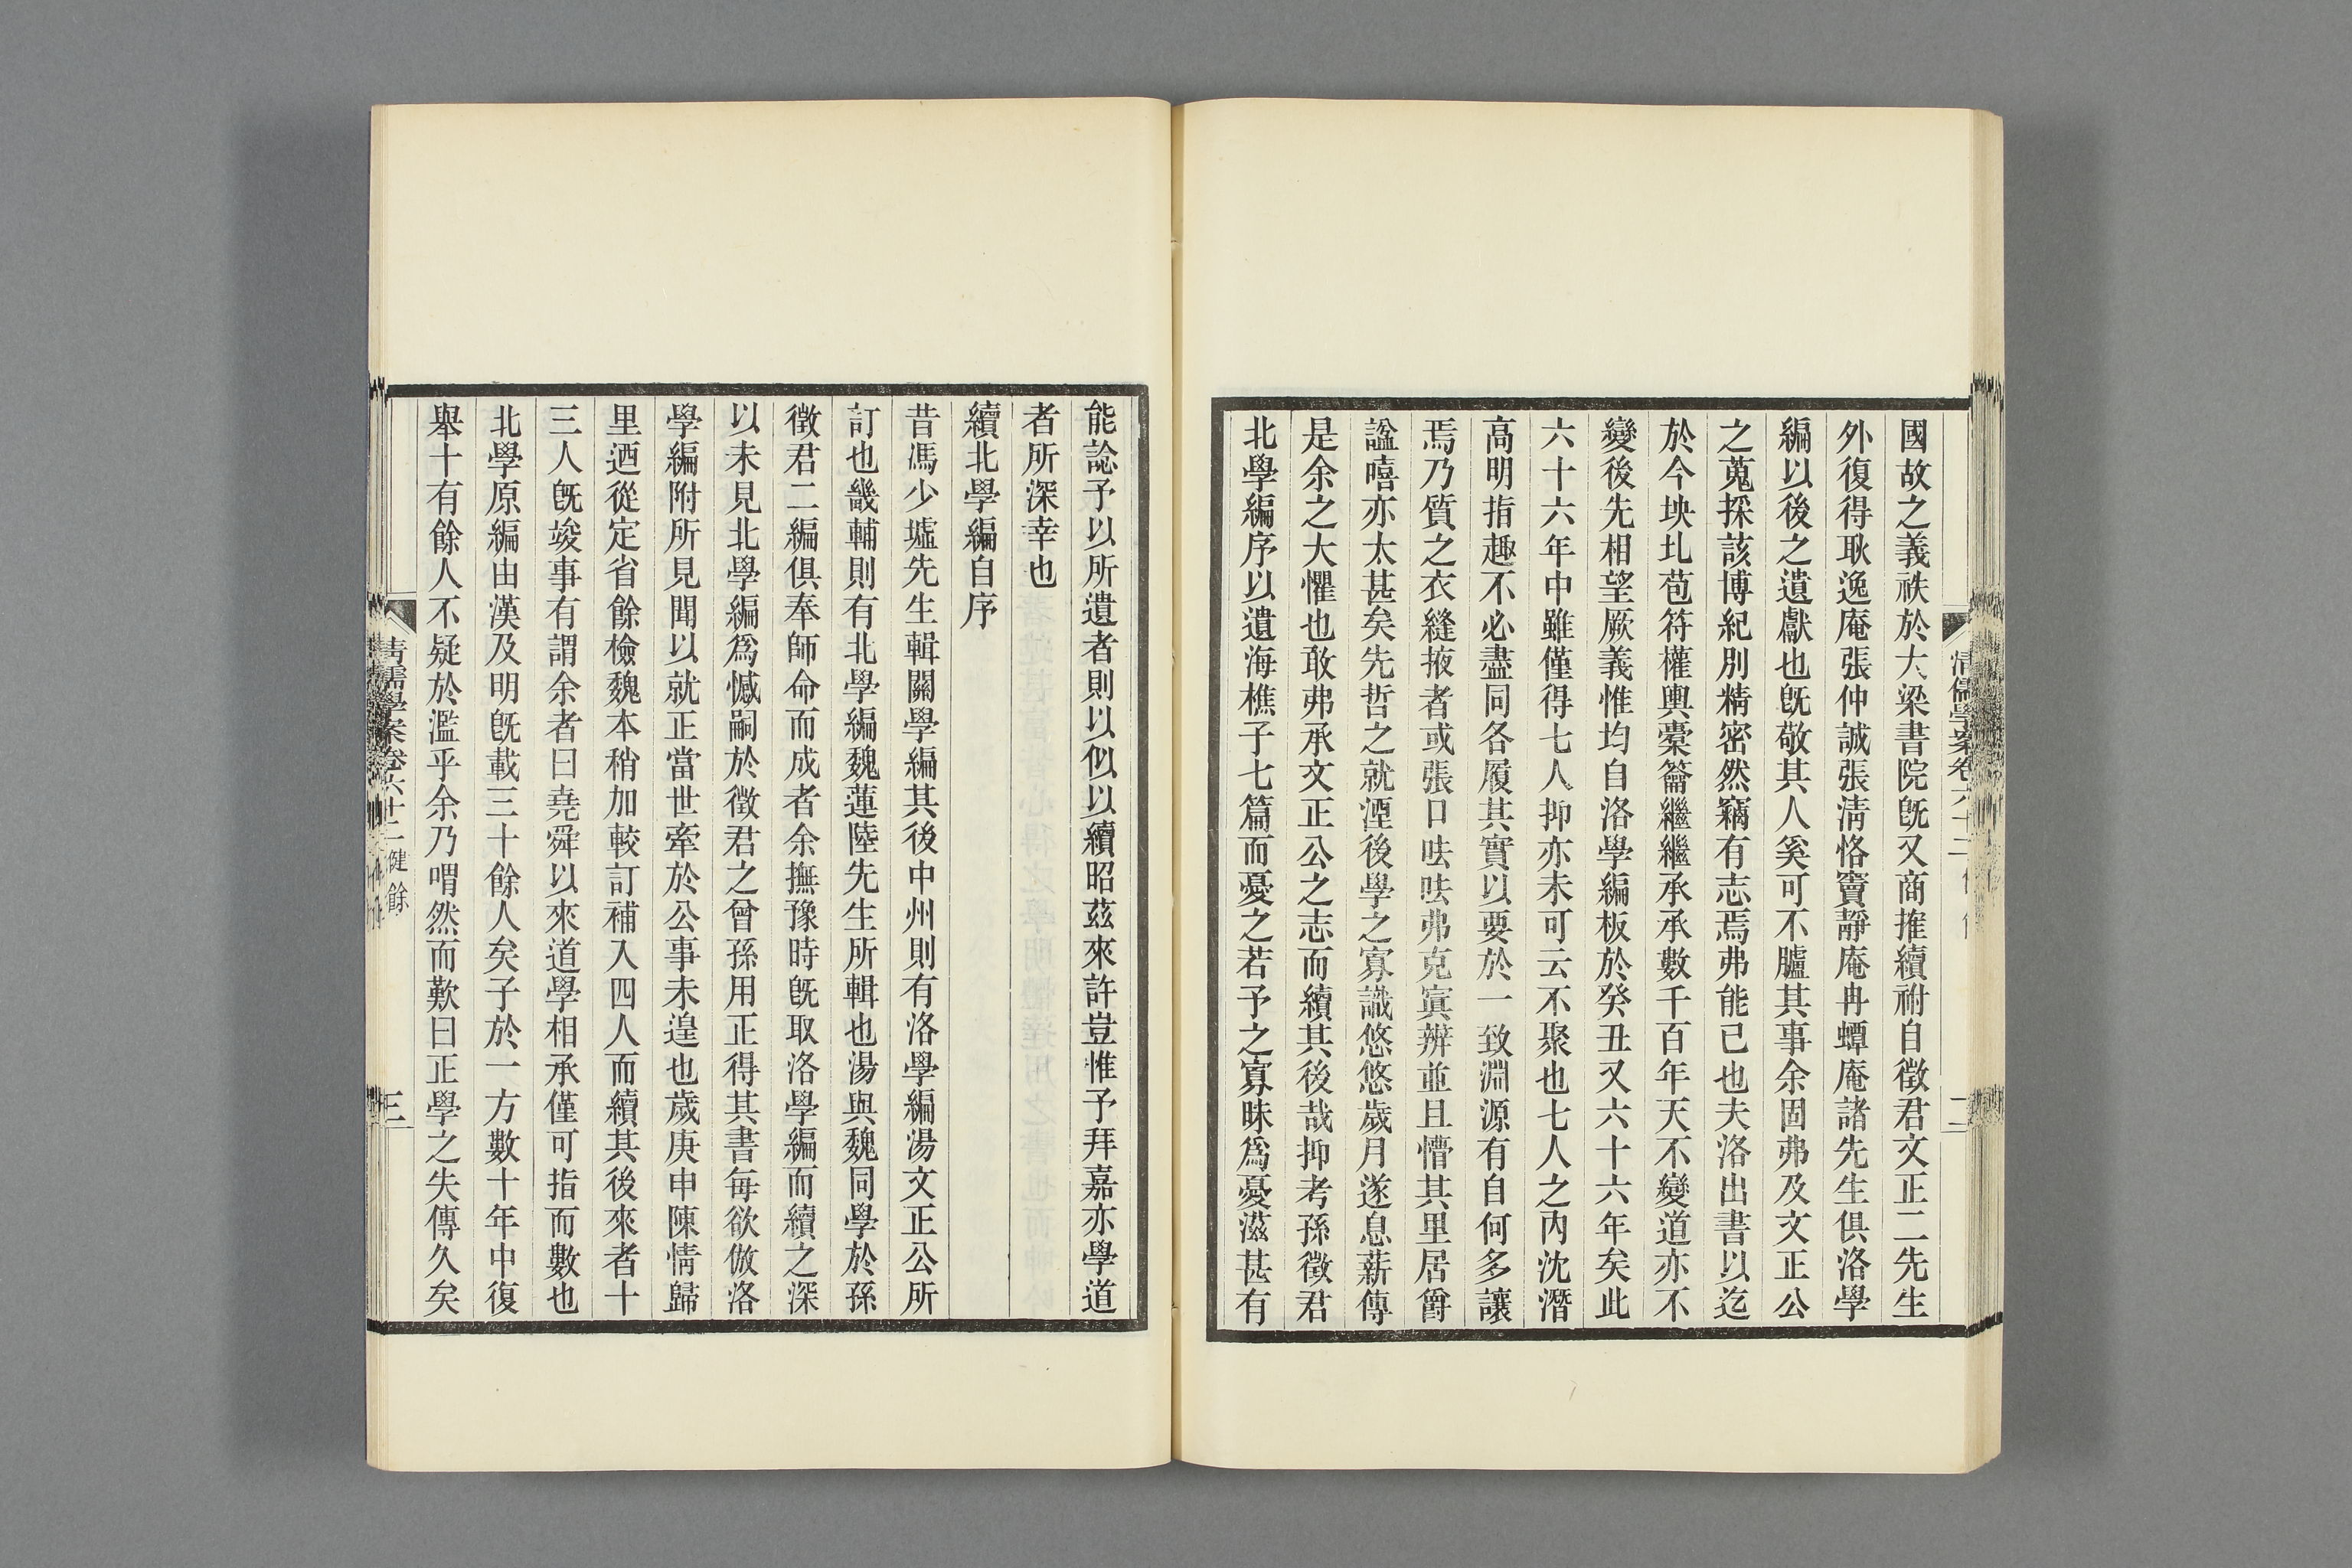 國故之義祑於大梁書院旣又商搉續祔自徵君文正二先生
外復得耿逸庵張仲誠張淸恪竇靜庵冉蟫庵諸先生俱洛學
編以後之遺獻也旣敬其人奚可不臚其事余固弗及文正公
之蒐採該博紀別精密然竊有志焉弗能已也夫洛出書以迄
於今坱圠苞符權輿橐籥繼繼承承數千百年天不變道亦不
變後先相望厥義惟均自洛學編板於癸丑又六十六年矣此
六十六年中雖僅得七人抑亦未可云不聚也七人之內沈潛
高明指趣不必盡同各履其實以要於一致淵源有自何多讓
焉乃質之衣縫掖者或張口呿呿弗克寘辨並且懵其里居爵
諡嘻亦太甚矣先哲之就湮後學之寡識悠悠歲月遂息薪傳
是余之大懼也敢弗承文正公之志而續其後哉抑考孫徵君
北學編序以遺海樵子七篇而憂之若予之寡昧爲憂滋甚有
清儒學案卷六十二
二
能諗予以所遺者則以似以續昭茲來許豈惟予拜嘉亦學道
者所深幸也
續北學編自序
昔馮少墟先生輯關學編其後中州則有洛學編湯文正公所
訂也畿輔則有北學編魏蓮陸先生所輯也湯與魏同學於孫
徵君二編俱奉師命而成者余撫豫時旣取洛學編而續之深
以未見北學編爲憾嗣於徵君之曾孫用正得其書每欲倣洛
學編附所見聞以就正當世牽於公事未遑也歲庚申陳情歸
里迺從定省餘檢魏本稍加較訂補入四人而續其後來者十
三人旣竣事有謂余者曰堯舜以來道學相承僅可指而數也
北學原編由漢及明旣載三十餘人矣子於一方數十年中復
舉十有餘人不疑於濫乎余乃喟然而歎曰正學之失傳久矣
清儒學案卷六十二 健餘
三